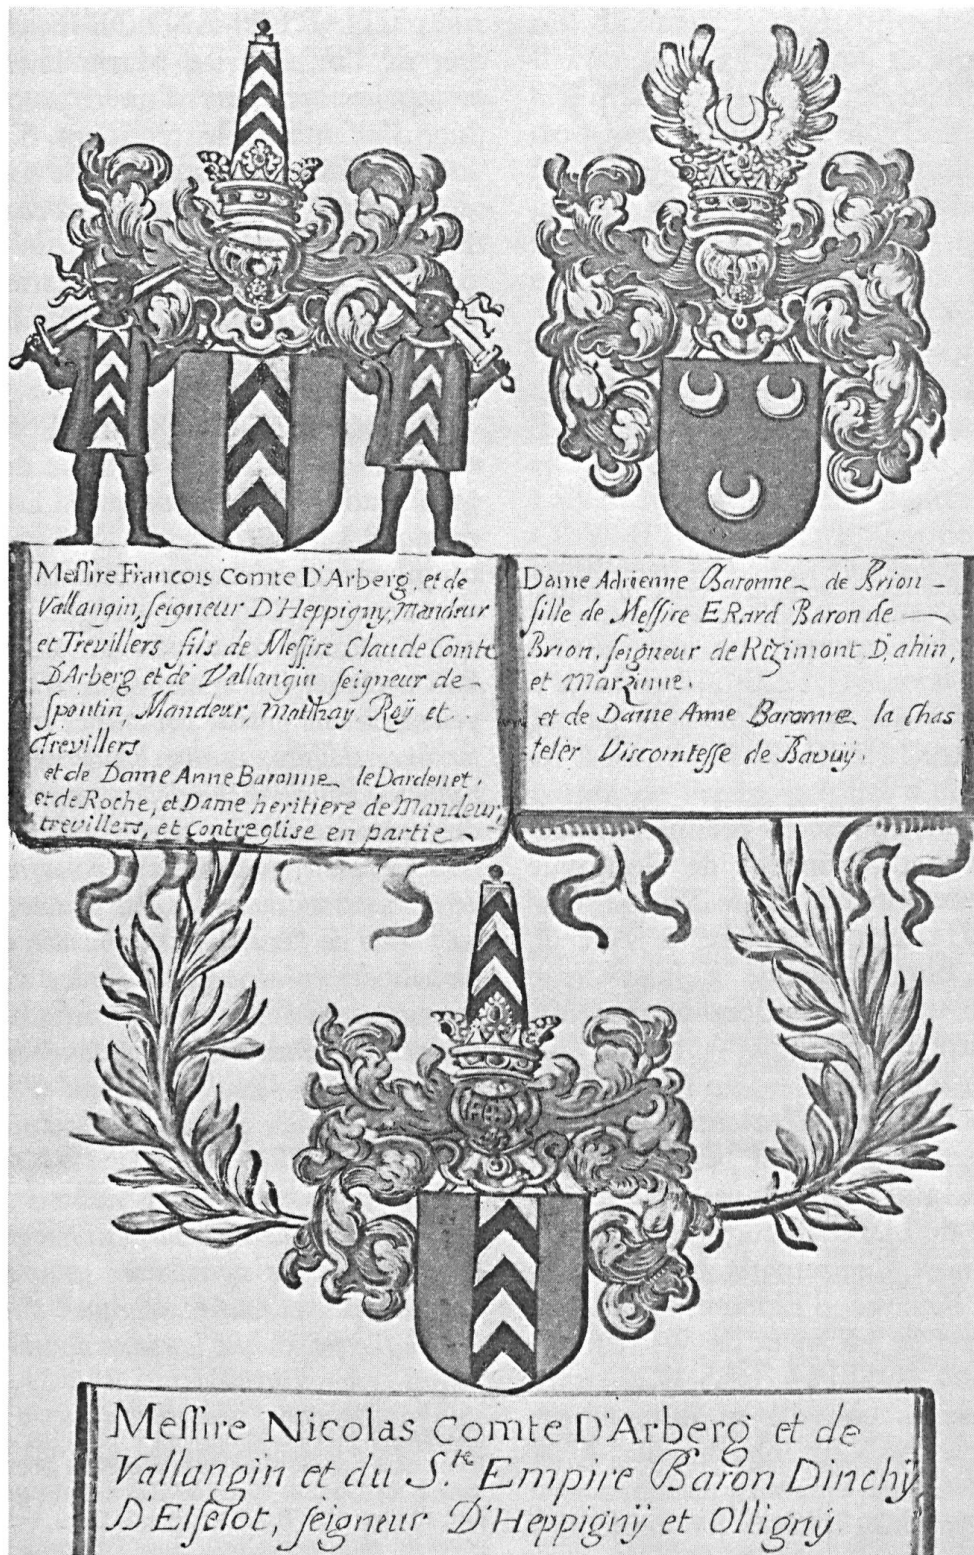 Meſſire Francois Comte D'Arberg, et de
Vallangin, ſeigneur D'Heppigny, Mandeur
et Trevillers fils de Meſſire Claude Comte
D'Arberg et de Vallangin ſeigneur de
Spontin, Mandeur, Matthay, Roÿ et
trevillers
et de Dame Anne Baronne le Dardenet,
et de Roche, et Dame heritiere de Mandeur,
trevillers, et Contreglise en partie
Dame Adrienne Baronne de Brion
fille de Meſſire ERard Baron de
Brion, ſeigneur de Rizimont D'ahin,
et Marzinne.
et de Dame Anne Baronne la Chas
telèr Viscomtesse de Bavuÿ.
Meſſire Nicolas Comte D'Arberg et de
Vallangin et du S.te Empire Baron Dinchÿ
D'Elſelot, ſeigneur D'Heppignÿ et Ollignÿ